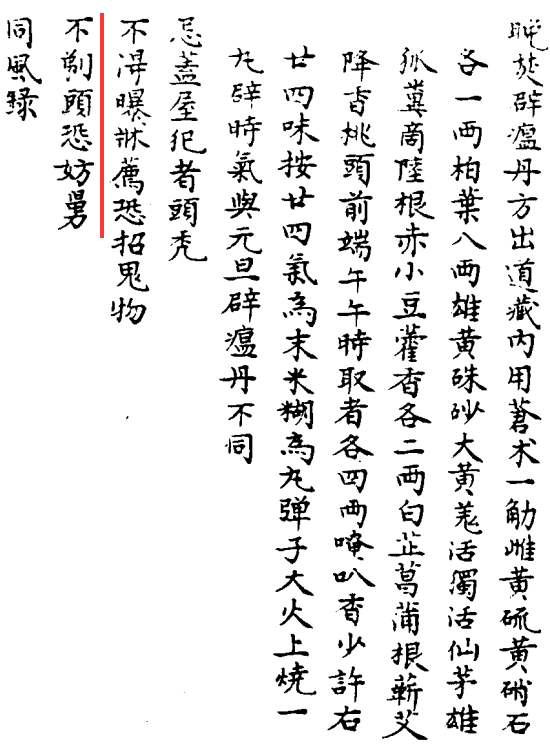 晚焚辟瘟丹方出道藏內用蒼朮一觔雌黃硫黃硝石
各一兩柏葉八兩雄黃硃砂大黃羗活獨活仙茅雄
狐糞商陸根赤小豆藿香各二兩白芷菖蒲根蘄艾
降香桃頭前端午午時取者各四兩唵叭香少許右
廿四味按廿四氣為末米糊為丸弹子大火上燒一
丸辟時氣與元旦辟瘟丹不同
忌蓋屋犯者頭禿
不淂曝牀薦恐招鬼物
不剃頭恐妨舅
同風録